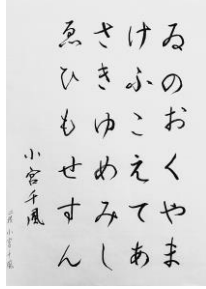 ゐのおくやま
けふこえてあ
さきゆめみし
ゑひもせすん
小宮千風
小宮千風